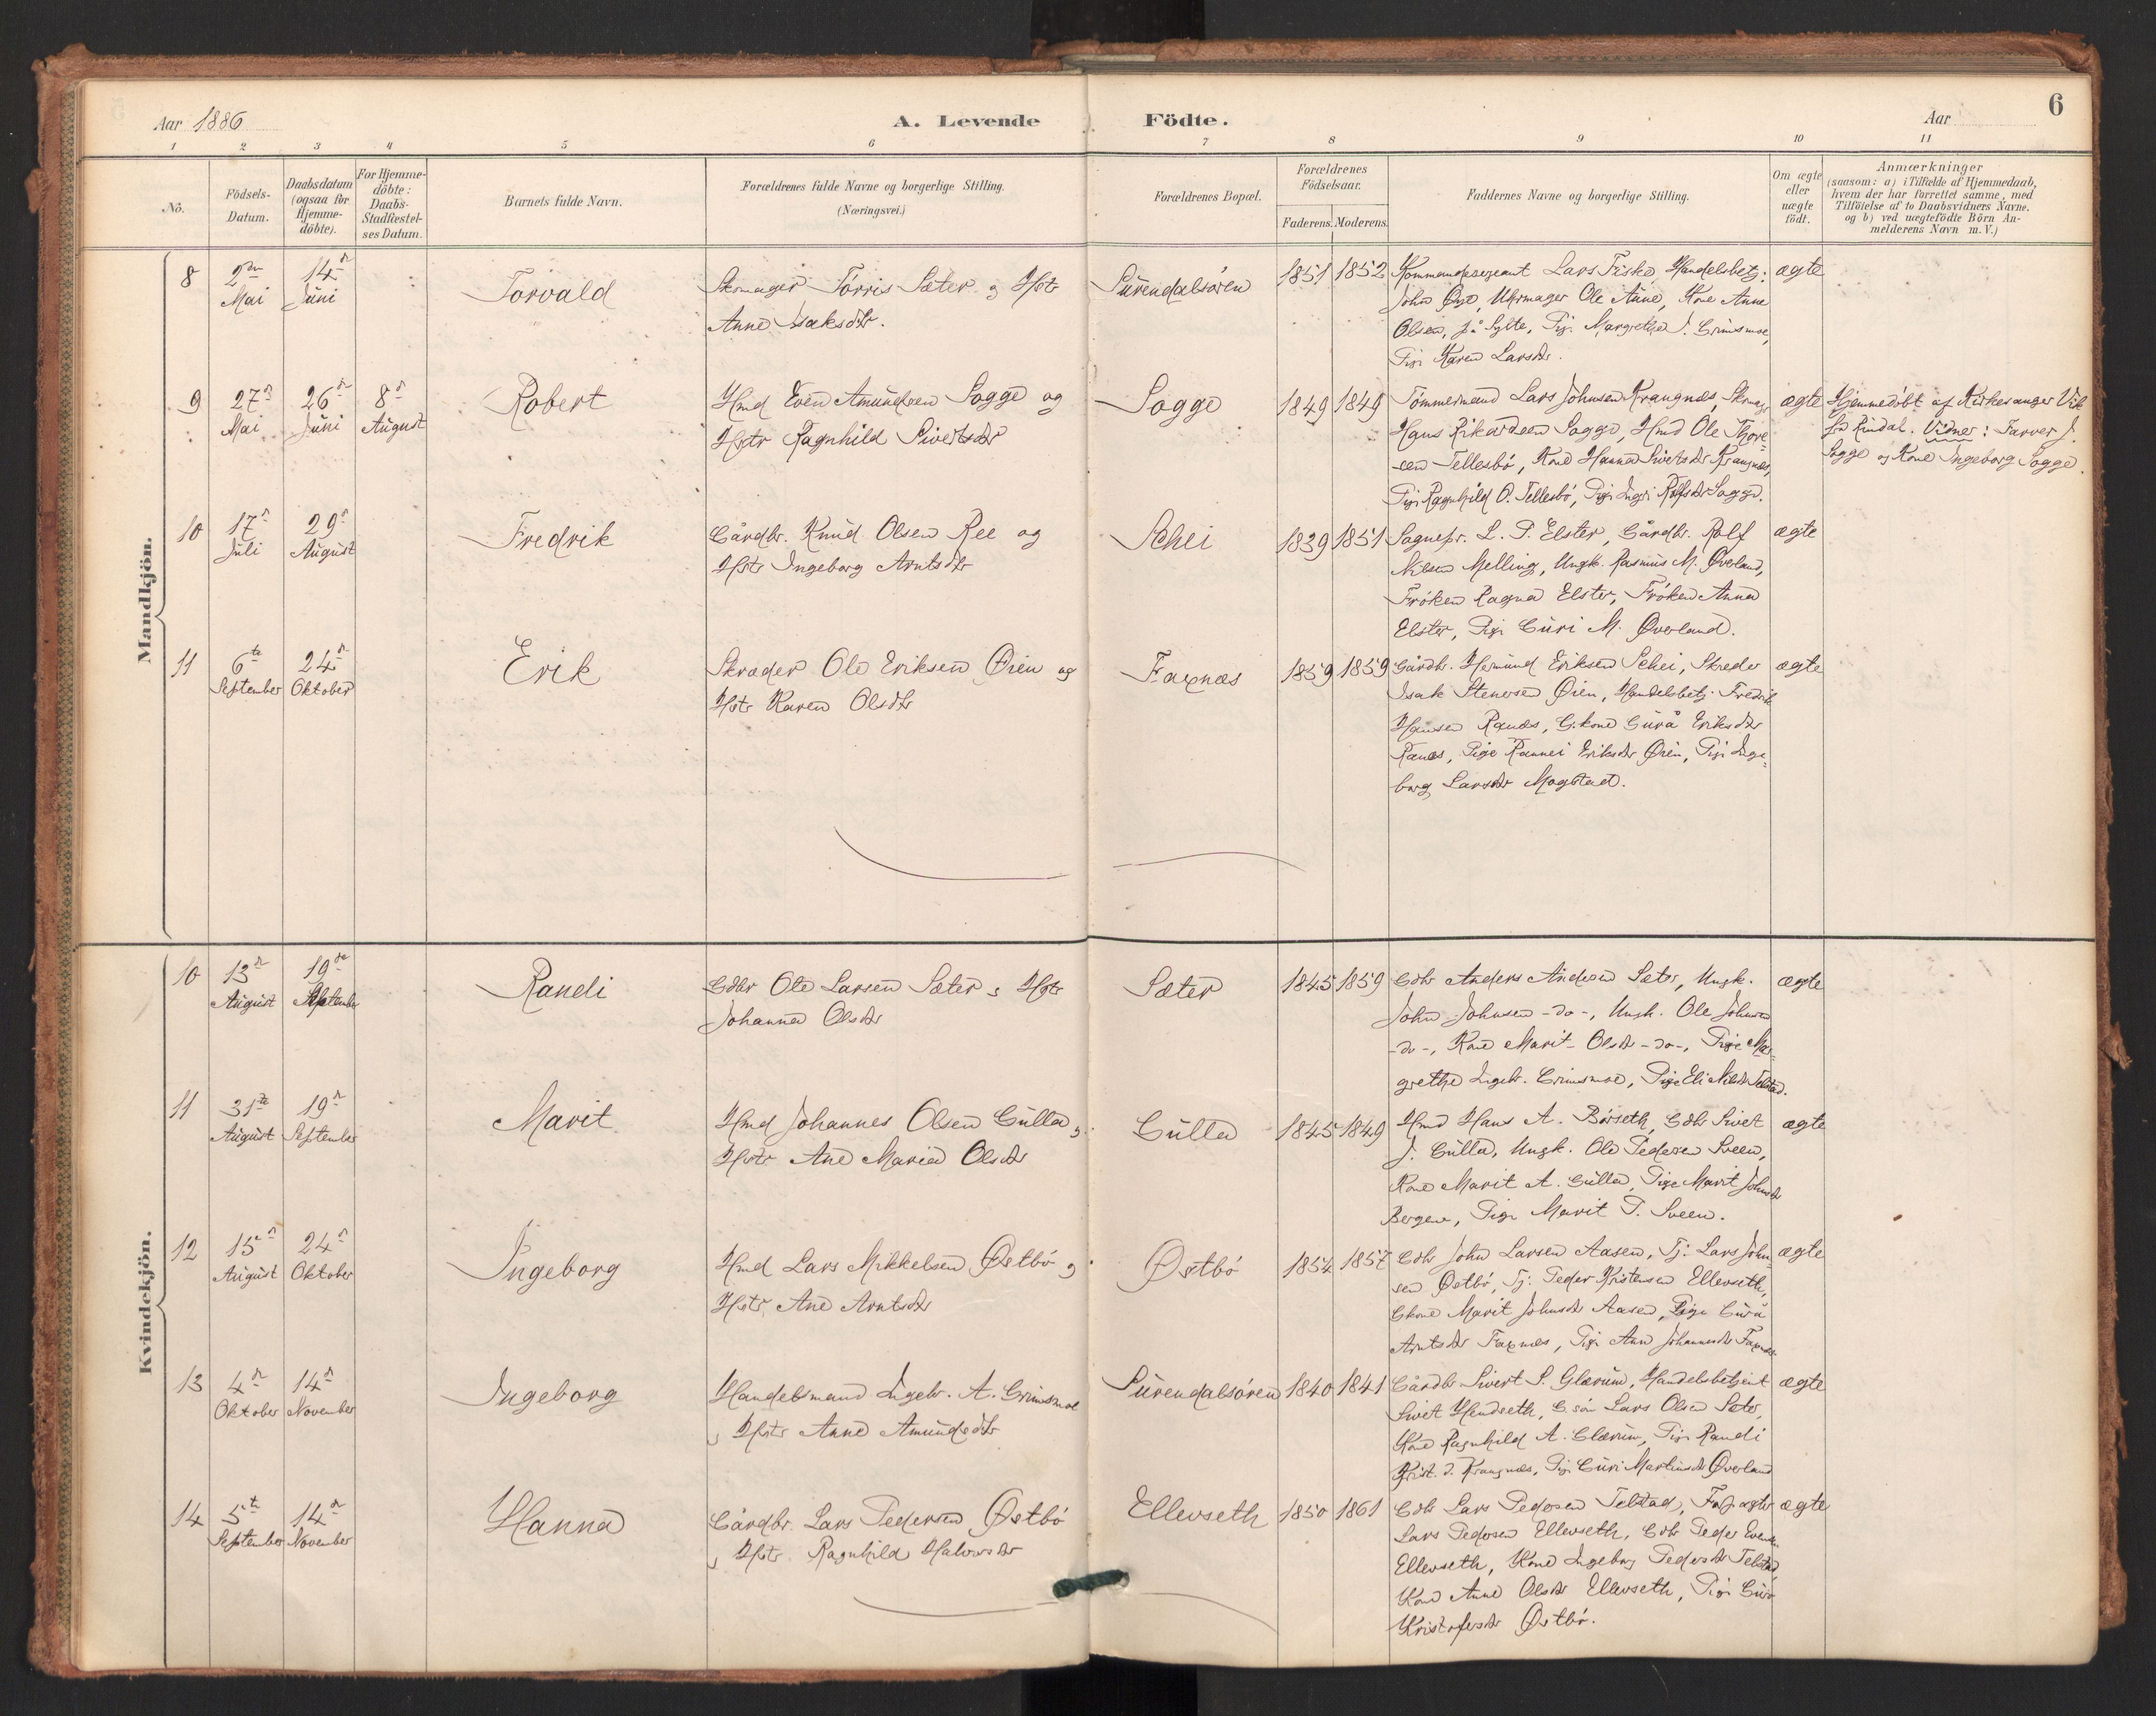 Aar 1886
A. Levende Födte.
Aar
6
1 2 3 4 5 6 7 8 9 10 11
Nō.
Födsels-Datum.
Daabsdatum (ogsaa for Hjemme-döbte).
For Hjemme-döbte: Daabs-Stadfæstel-ses Datum.
Barnets fulde Navn.
Forældrenes fulde Navne og borgerlige Stilling.
(Næringsvei.)
Forældrenes Bopæl.
Forældrenes Födselsaar.
Faderens. Moderens.
Faddernes Navne og borgerlige Stilling.
Om ægte eller uægte födt.
Anmærkninger
(saasom: a) i Tilfælde af Hjemmedaab,
hvem der har forrettet samme, med
Tilföielse af to Daabsvidners Navne.
og b) ved uægtefödte Börn An-
melderens Navn m. V.)
Mandkjön.
8 2den Mai 14n Juni Torvald
Skomager Torris Sæter og Hstr
Anne Isaksdtr.
Surendalsören 1851 1852
Kommandersergeant Lars Fiske, Handelsbetj:
John Øye, Uhrmager Ole Aune, Kone Anne
Olsen, Sylte, Pige Margrethe J. Grimsmoe,
Pige Karen Larsdtr.
ægte
9 27n Mai 26n Juni 8n August Robert
Hmd Even Amundsen Sogge og
Hstr Ragnhild Sivertsdtr
Sogge 1849 1849
Tömmermand Lars Johnsen Krangnæs, Skomag.
Hans Rikardsen Sogge, Hmd Ole Thore-
sen Tellesbö, Kone Hanna Sivertsdtr Krangnæs,
Pige Ragnhild O. Tellesbö, Pige Ingri Rolfsdtr Sogge.
ægte
Hjemmedöbt af Kirkesanger Vik
fra Rindal. Vidner: Farver J.
Sogge og Kone Ingeborg Sogge.
10 17n Juli 29n August Fredrik
Gårdbr. Knud Olsen Ree og
Hstr Ingeborg Arntsdtr
Schei 1839 1851
Sognepr. L. P. Elster, Gårdbr. Rolf
Nilsen Melling, Ungk. Rasmus M. Øverland,
Fröken Ragna Elster, Fröken Anna
Elster, Pige Guri M. Øverland.
ægte
11 6te September 24n Oktober Erik
Skræder Ole Eriksen Øien og
Hstr Karen Olsdtr
Faxnæs 1859 1859
Gårdbr. Hermund Eriksen Schei, Skreder
Isak Stenersen Øien, Handelsbetj. Fredrik
Hansen Ranæs, G.kone Gurå Eriksdtr
Ranæs, Pige Rannei Eriksdtr Øien, Pige Inge-
borg Larsdtr Mogstad.
ægte
Kvindekjön.
10 13n August 19de September Randi
Gdbr Ole Larsen Sæter og Hstr
Johanna Olsdtr
Sæter 1845 1859
Gdbr Anders Andersen Sæter, Ungk.
John Johnsen -do-, Ungk. Ole Johnsen
-do-, Kone Marit Olsdtr -do-, Pige Mar-
grethe Ingebr. Grimsmoe, Pige Eli Nilsdtr Telstad.
ægte
11 31te August 19n September Marit
Hmd Johannes Olsen Gulla og
Hstr Ane Maria Olsdtr
Gulla 1845 1849
Hmd Hans A. Börseth, Gdbr Sivert
J. Gulla, Ungk. Ole Pedersen Sveen,
Kone Marit A. Gulla, Pige Marit Johnsdtr
Bergem, Pige Marit P. Sveen.
ægte
12 15n August 24n Oktober Ingeborg
Hmd Lars Mikkelsen Østbö og
Hstr Ane Arntsdtr
Østbö 1854 1857
Gdbr John Larsen Aasen, Tj. Lars John-
sen Østbö, Tj. Peder Kristensen Ellevseth,
Gkone Marit Johnsdtr Aasen, Pige Gurå
Arntsdtr Faxnæs, Pige Ane Johannesdtr Faxnæs
ægte
13 4n Oktober 14n November Ingeborg
Handelsmand Ingebr. A. Grimsmoe
og Hstr Anne Amundsdtr
Surendalsören 1840 1841
Gårdbr Sivert S. Glærum, Handelsbetjent
Sivert Hendseth, G.sön Lars Olsen Sæter,
Kone Ragnhild A. Glærum, Pige Randi
Krist. d. Krangnæs, Pige Guri Martinsdtr Øverland
ægte
14 5te September 14n November Hanna
Gårdbr. Lars Pedersen Østbö
og Hstr. Ragnhild Halvorsdtr
Ellevseth 1850 1861
Gdbr Lars Pedersen Telstad,
Lars Pedersen Ellevseth, Gdbr Peder Evensen
Ellevseth, Kone Ingeborg Pedersdtr Telstad,
Kone Anne Olsdtr Ellevseth, Pige Guro
Kristofersdtr Østbö.
ægte